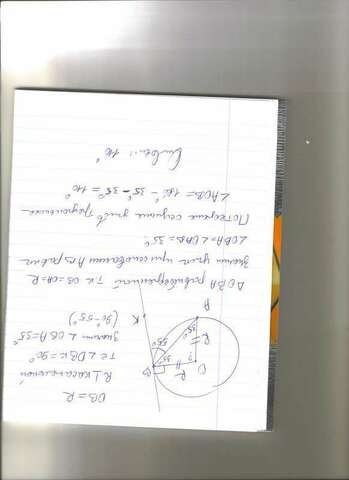 OB = R
R ⊥ касательной
т.е ∠OBK = 90°
Значит ∠OBA = 35°
(90° - 55°)
B
O
R
?
R
35°
55°
35°
A
K
ΔOBA равнобедренный т.к OB = OA = R
Значит углы при основании AB равны
∠OBA = ∠OAB = 35°
По теореме сумме углов треугольника
∠AOB = 180° - 35° - 35° = 110°
Ответ: 110°